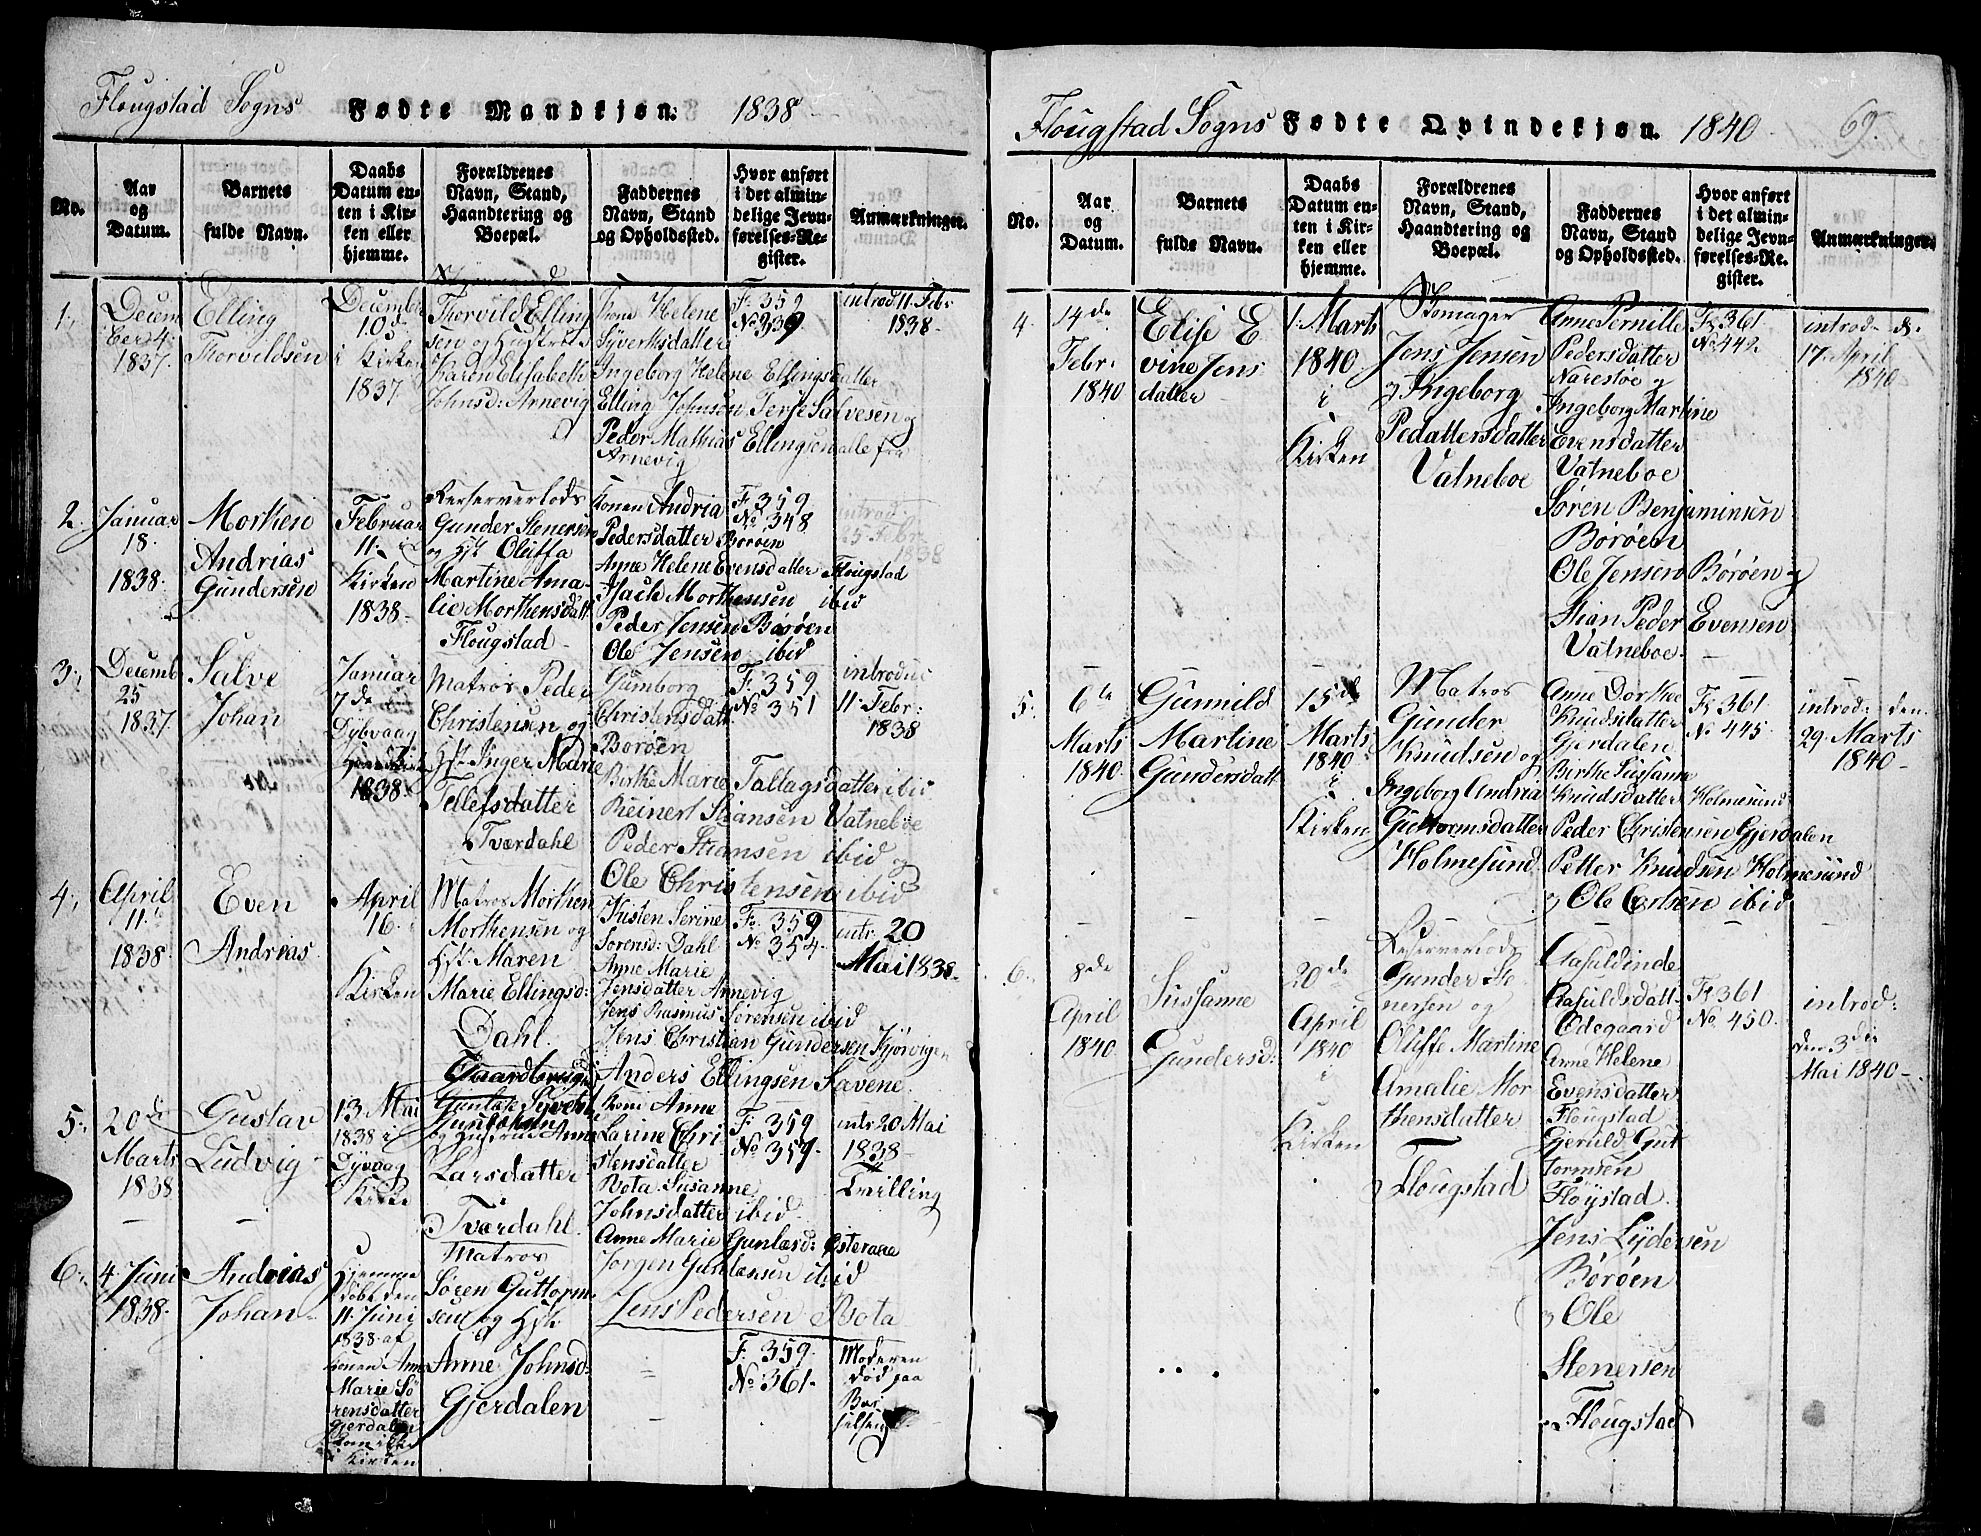 Flougstad Sogns Fødte Mandkjøn. 1838
No.
Aar og Datum.
Barnets fulde Navn.
Daabs Datum enten i Kirken eller hjemme.
Forældrenes Navn, Stand, Haandtering og Boepæl.
Faddernes Navn, Stand og Opholdssted.
Hvor anført i det almindelige Jevnførelses-Register.
Anmærkninger.
1.
Decem
ber 4
1837.
Elling
Thorvildsen
Decembr
10d
i Kirken
1837
Thorvild Elling
sen og Hustrue
Karen Elisabeth
Johnsd: Arnevig
Kone Helene
Syvertsdatter
Ingeborg Helene Ellingsdatter
Elling Johnson Terje Salvesen og
Peder Mathias Ellingsen alle fra
Arnevig
F. 359
No 339
introd 11 Febr
1838
2.
Januar
18.
1838.
Morthen
Andrias
Gundersen
Februar
11. i
Kirken
1838
Reserverlods
Gunder Stenersen
og Hst Oluffa
Martine Ama-
lie Morthensdatt
Flougstad
Konen Andria
Pedersdatter Borøen
Anne Helene Evensdatter Flougstad
Isach Morthensen ibid
Peder Jensen Borøen
Ole Jensen ibid
F. 359
No 348
introd.
25 Febr
1838
3.
Decemb
25
1837
Salve
Johan
Januar
7de
Dybvaag
1838
Matros Peder
Christensen og
Hst Inger Marie
Tellefsdatter
Tværdahl
Gumborg
Christensdatt
Borøen
Birthe Marie Tallagsdatter ibid
Reinert Stiansen Vatneboe
Peder Stiansen ibid og
Ole Christensen ibid
F. 359
No 351
introduc
11 Febr:
1838
4.
April
11.
1838.
Even
Andreas
April
16. i
Kirken
Matros Morthen
Morthensen og
Hst Maren
Marie Ellingsd:
Dahl.
Kisten Serine
Sørensd: Dahl
Anne Marie
Jensdatter Arnevig
Jens Rasmus Sørensen ibid
Jens Christian Gundersen Kjørvigen
Anders Ellingsen Savene.
F. 359
No 354
intr. 20
Mai 1838
5.
20de
Marts
1838
Gustav
Ludvig
13 Mai
1838 i
Dybvaag
Kirke
Gunlak Syvert
og Hustrue Anne
Larsdatter
Tværdahl.
Koni Anne
Larine Chri
stensdatter
Bota Susanne
Johnsdatter ibid
Anne Marie Gunlasd: Østeraae
Jørgen Gunlaksen ibid
Jens Pedersen Bota
F. 359
No 357
intr. 20 Mai
1838
Tvilling
6.
4 Juni
1838.
Andreas
Johan
Hjemme
døbt den
11. Juni
1838 af
Konen Anne
Marie Sø
rensdatter
Gjerdalen
kom ikke
i Kirken
Matros
Søren Guttorm
sen og Hst
Anne Johnsd:
Gjerdalen
F. 359.
No 361
Moderen
død paa
Bar
selseng
Flougstad Sogns Fødte Qvindekjøn. 1840 69.
No.
Aar og Datum.
Barnets fulde Navn.
Daabs Datum enten i Kirken eller hjemme.
Forældrenes Navn, Stand, Haandtering og Boepæl.
Faddernes Navn, Stand og Opholdssted.
Hvor anført i det almindelige Jevnførelses-Register.
Anmærkninger.
4.
14de
Febr.
1840
Elise E
vine Jens
datter
1. Marts
1840
i
Kirken
Skomager
Jens Jensen
og Ingeborg
Pedattersdatter
Vatneboe
Anne Pernille
Pedersdatter
Narestøe og
Ingeborg Martine
Evensdatter
Vatneboe
Søren Benjaminsen
Børøen
Ole Jensen Børøen og
Stian Peder Evensen
Vatneboe.
F. 361
No 442
introd. d.
17. April
1840
5.
6te
Marts
1840
Gunnild
Martine
Gundersdatt
15de
Marts
1840
i
Kirken
Matros
Gunder
Knudsen og
Ingeborg Andrea
Guttormsdatter
Holmesund
Anne Dorthee
Knudsdatter
Gjerdalen
Birthe Sussanne
Knudsdatter Holmesund
Peder Christensen Gjerdalen
Petter Knudsen Holmesund
og Ole Ertsen ibid
F. 361
No 445
introd. den
29. Marts
1840
6.
8de
April
1840.
Sussanne
Gundersd:
20de
April
1840
i
Kirken
Reserverlods
Gunder Ste
nersen og
Oluffe Martine
Amalie Mor
thensdatter
Flougstad
Aafuldinde
Rafuldsdatt
Ødegaard
Anne Helene
Evensdatter
Flougstad
Gjeruld Gut
tormsen
Fløystad.
Jens Lydersen
Børøen
og Ole
Stenersen
Flougstad
F. 361
No 450.
introd:
den 3die
Mai 1840